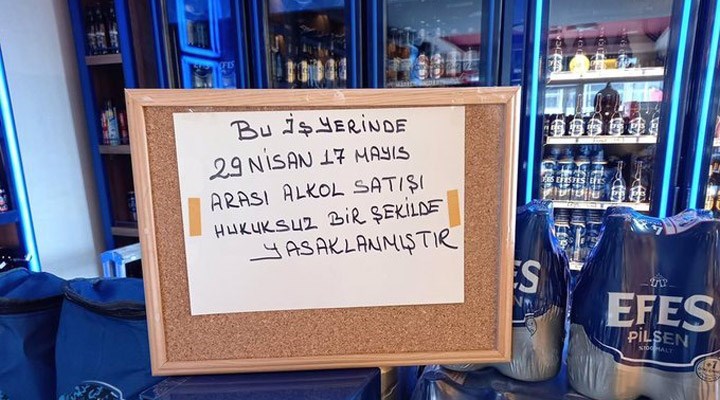 BU İŞYERİNDE
29 NİSAN 17 MAYIS
ARASI ALKOL SATIŞI
HUKUKSUZ BİR ŞEKİLDE
YASAKLANMIŞTIR
EFES
ES
EFES
PİLSEN
%100 MALT